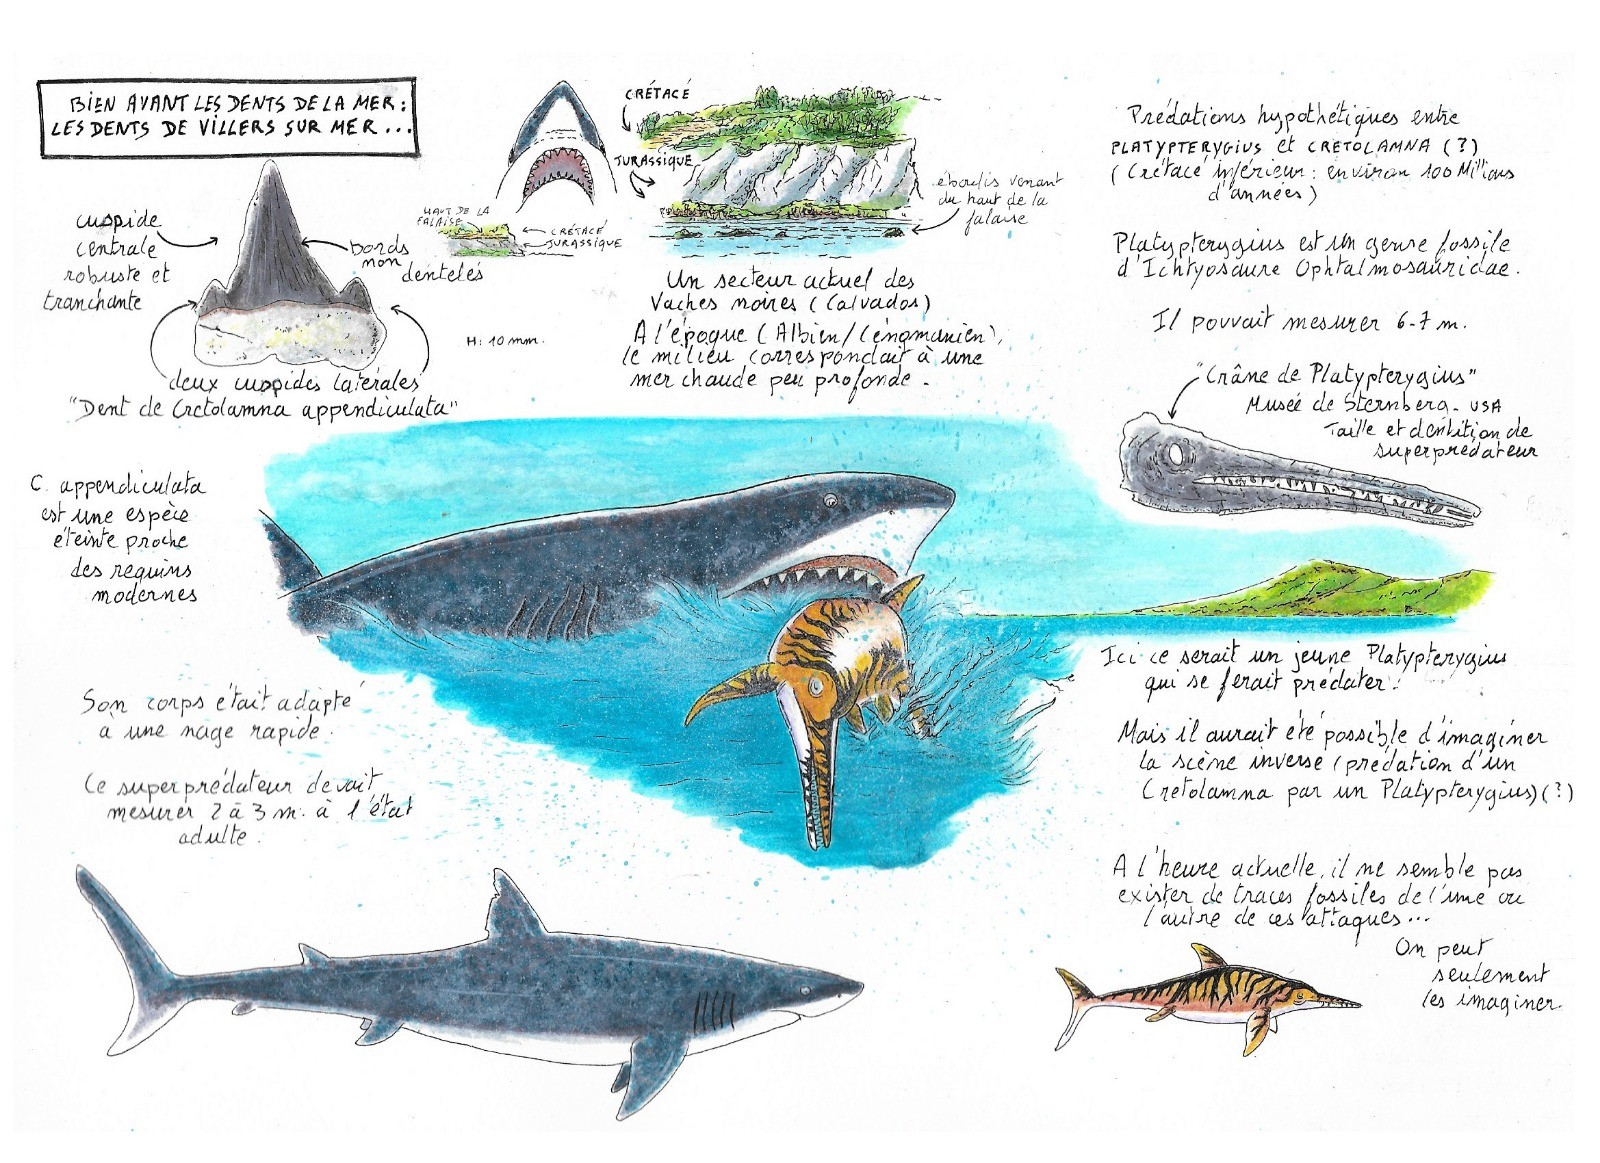 BIEN AVANT LES DENTS DE LA MER :
LES DENTS DE VILLERS SUR MER ...
cuspide
centrale
robuste et
tranchante
bords
non
dentelés
deux cuspides latérales
"Dent de Cretolamna appendiculata"
H: 10 mm.
HAUT DE LA
FALAISE
CRÉTACÉ
JURASSIQUE
CRÉTACÉ
JURASSIQUE
éboulis venant
du haut de la
falaise
Un secteur actuel des
Vaches noires (Calvados)
A l'époque (Albien/Cénomanien),
le milieu correspondait à une
mer chaude peu profonde.
Prédations hypothétiques entre
PLATYPTERYGIUS et CRETOLAMNA (?)
(Crétacé inférieur : environ 100 Millions
d'années)
Platypterygius est un genre fossile
d'Ichtyosaure Ophtalmosauridae.
Il pouvait mesurer 6-7 m.
"Crâne de Platypterygius"
Museé de Sternberg - USA
Taille et dentition de
superprédateur
C. appendiculata
est une espèce
éteinte proche
des requins
modernes
Son corps était adapté
à une nage rapide.
Ce superprédateur devait
mesurer 2 à 3 m. à l'état
adulte.
Ici ce serait un jeune Platypterygius
qui se ferait prédater !
Mais il aurait été possible d'imaginer
la scène inverse (prédation d'un
Cretolamna par un Platypterygius) (?)
A l'heure actuelle, il ne semble pas
exister de traces fossiles de l'une ou
l'autre de ces attaques ...
On peut
seulement
les imaginer.